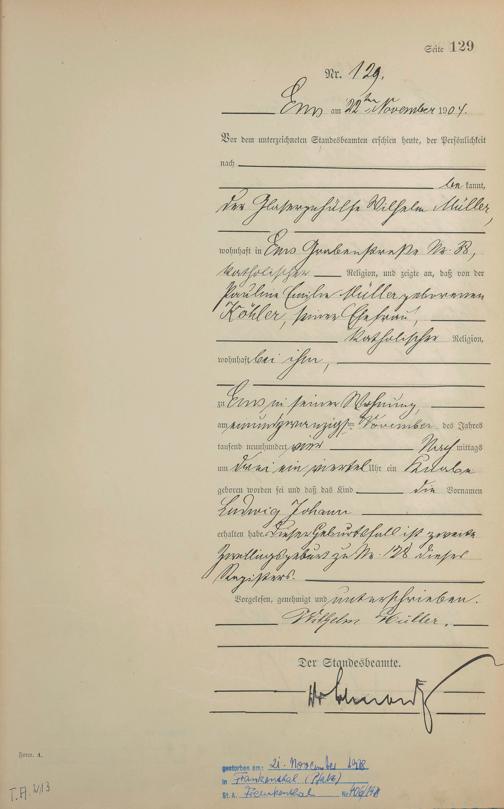 Seite 129
Nr. 129.
Ems am 22ten November 1904.
Vor dem unterzeichneten Standesbeamten erschien heute, der Persönlichkeit
nach
be kannt,
der Glasergehülfe Wilhelm Müller,
wohnhaft in Ems Grabenstraße Nr. 38,
katholischer Religion, und zeigte an, daß von der
Pauline Emilie Müller geborenen
Köhler, seiner Ehefrau,
katholischer Religion,
wohnhaft bei ihm,
zu Ems, in seiner Wohnung,
am einundzwanzigsten November des Jahres
tausend neunhundert vier Nachmittags
um drei ein viertel Uhr ein Knabe
geboren worden sei und daß das Kind die Vornamen
Ludwig Johann
erhalten habe. Dieser Geburtsfall ist zweite
Zwillingsgeburt zu Nr. 128 dieses
Registers.
Vorgelesen, genehmigt und unterschrieben.
Wilhelm Müller.
Der Standesbeamte.
Form. A.
T.A. 1/13
gestorben am: 21. November 1978
in Frankenthal (Pfalz)
St. A. Frankenthal Nr.